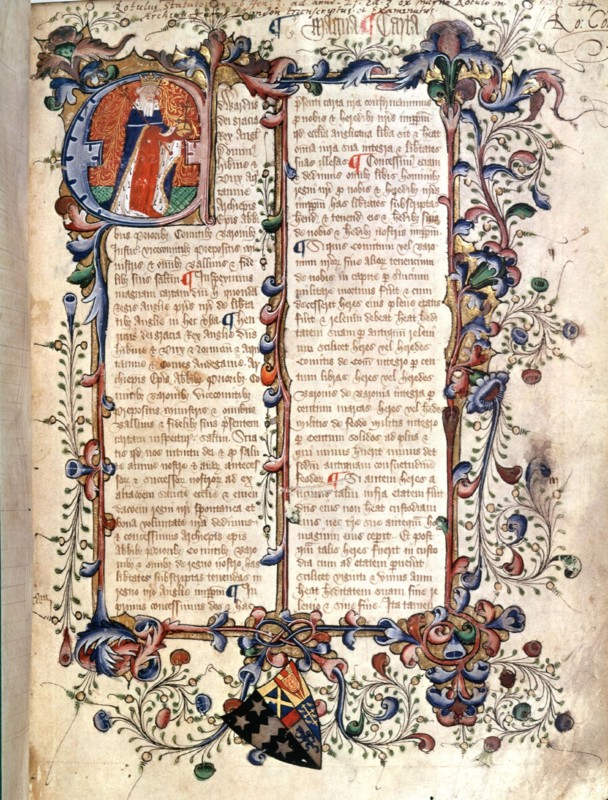 Magna Carta
Edwardus
dei gracia
Rex Angl
Domin
Hibnie &
Dux Aqi
tannie
Archiepis
Epis Abb
bus Prioribȝ Comitibȝ Baronibȝ
Justic vicecomitibȝ Prepositis mi
nistris & omibȝ Ballivis & fide
libȝ suis saltm ¶ Inspeximus
magnam cartam dni H quondam
Regis Anglie pris nri de libta
tibȝ Anglie in hec vba ¶ Hen
ricus dei gracia Rex Anglie Dns
Hibnie & Dux & Normann & Aqui
tannie & Comes Andegavie Ar
chiepis Epis Abbibȝ Prioribȝ Co
mitibȝ Baronibȝ Vicecomitibȝ
Prepositis ministris & omibȝ
Ballivis & fidelibȝ suis psentem
cartam inspectur saltm Scia
tis qd nos intuitu dei & p salu
te anime nostre & aiarȝ antecess
orȝ & successorȝ nostrorȝ ad ex
altacoem sancte ecclie & emen
dacoem regni nri spontanea et
bona voluntate nra dedimus
& concessimus Archiepis Epis
Abbibȝ Prioribȝ Comitibȝ Baro
nibȝ & omibȝ de regno nostro has
libtates subscriptas tenendas in
regno nro Anglie imppm ¶ In
primis concessimus deo & hac
psenti carta nra confirmavimus
p nobis & heredibȝ nris imppm
qd ecclia anglicana libra sit & heat
omia iura sua integra & libtates
suas illesas ¶ Concessim eciam
& dedimus omibȝ libis hominibȝ
regni nri p nobis & heredibȝ nris
imppm has libtates subscriptas
hend & tenend eis & heredibȝ suis
de nobis & heredibȝ nostris imppm
¶ Si quis comitum vel baro
num nrorȝ sive aliorȝ tenencium
de nobis in capite p servicium
militare mortuus fuit & cum
decesserit heres eius plene etatis
fuit & relevium debeat heat hedi
tatem suam p antiquum relevi
um Scilicet heres vel heredes
comitis de comit integro p cen
tum libras heres vel heredes
Baronis de Baronia integra p
centum marcas heres vel heredes
militis de feodo militis integro
p centum solidos ad plus &
qui minus huerit minus det
scdm antiquam consuetudinem
feodorȝ ¶ Si autem heres a
licuius talium infra etatem fuit
dns eius non heat custodiam
eius nec tre sue antequam ho
magium eius cepit Et post
qm talis heres fuerit in custo
dia cum ad etatem pvenit
scilicet viginti & unius annorȝ
heat hereditatem suam sine re
levio & sine fine Ita tamen